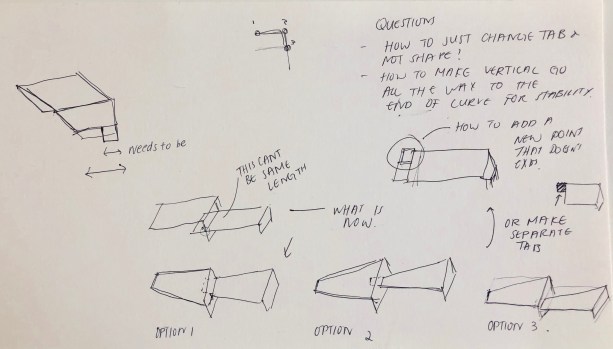 QUESTIONS
- HOW TO JUST CHANGE TAB &
NOT SHAPE!
- HOW TO MAKE VERTICAL GO
ALL THE WAY TO THE
END OF CURVE FOR STABILITY.
1 2
3
HOW TO ADD A
NEW POINT
THAT DOESN'T
EXIST.
needs to be
THIS CANT
BE SAME
LENGTH
WHAT IS
NOW.
OR MAKE
SEPARATE
TAB
OPTION 1
OPTION 2
OPTION 3.